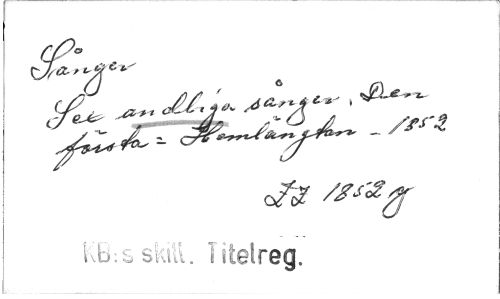 Sånger
Sex andliga sånger. Den
första = Hemlängtan - 1852
ZZ 1852 y
KB:s skill. Titelreg.